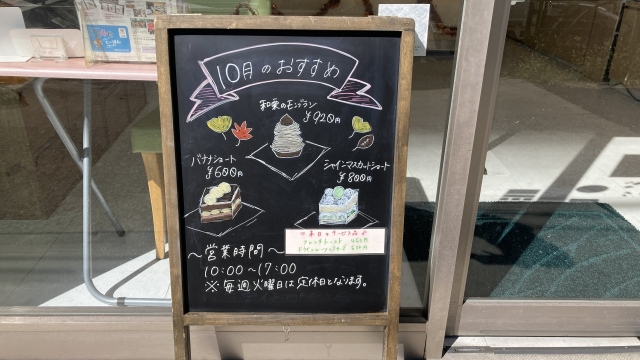 10月のおすすめ
和栗のモンブラン
¥920円
バナナショート
¥600円
シャインマスカットショート
¥800円
本日のサービス品
フレンチトースト
～営業時間～
10:00～17:00
※毎週火曜日は定休日となります。